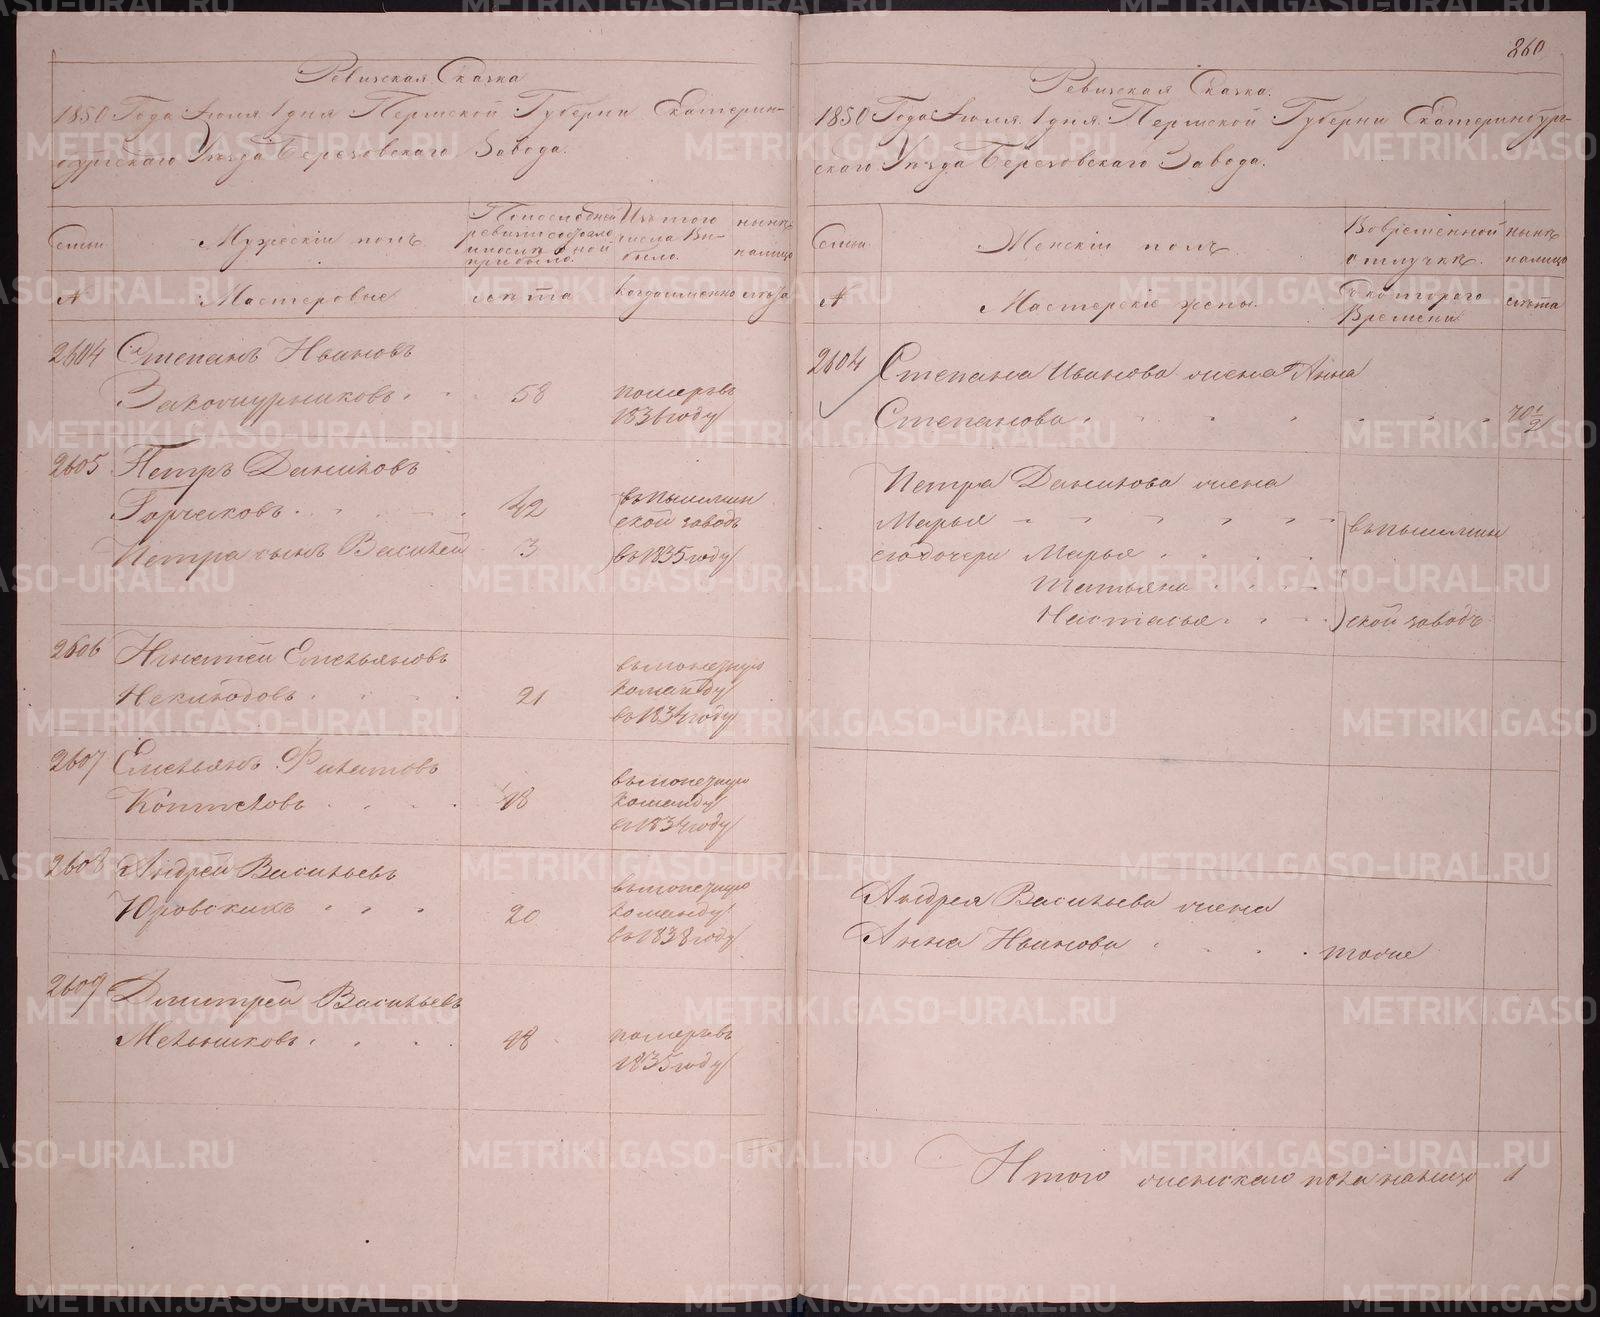 Ревизская Сказка
1850 Года Июля 1 дня Пермской Губернии Екатерин-
бургскаго Уѣзда Березовскаго Завода.
Семьи Мужеский полъ Изъ того числа выбыло нынѣ на лицо
№ Мастеровые лѣта когда именно лѣта
2604 Степанъ Ивановъ
58 померъ въ
1836 году
2605 Петръ Даниловъ
Горчаковъ 42 въ пышмин
ской заводъ
Петра сынъ Василей 3 въ 1835 году
2606 Игнатей Емельяновъ
Неклюдовъ 21 въ монетную
команду
въ 1834 году
2607 Емельянъ Филатовъ
Коптеловъ 18 въ монетную
команду
въ 1834 году
2608 Андрей Васильевъ
Юровскихъ 20 въ монетную
команду
въ 1838 году
2609 Дмитрей Васильевъ
Мельниковъ 18 померъ въ
1835 году
260
Ревизская Сказка.
1850 Года Июля 1 дня Пермской Губернии Екатеринбург-
скаго Уѣзда Березовскаго Завода.
Семьи Женский полъ Во временной отлучкѣ нынѣ на лицо
№ Мастерские жены. Съ котораго Времени лѣта
2604 Степана Иванова жена Анна
Степанова 70 1/2
Петра Данилова жена
Марья въ пышмин
его дочери Марья
Татьяна
Настасья ской заводъ
Андрея Васильева жена
Анна Иванова тоже
Итого женскаго пола налицо 1
METRIKI.GASO-URAL.RU